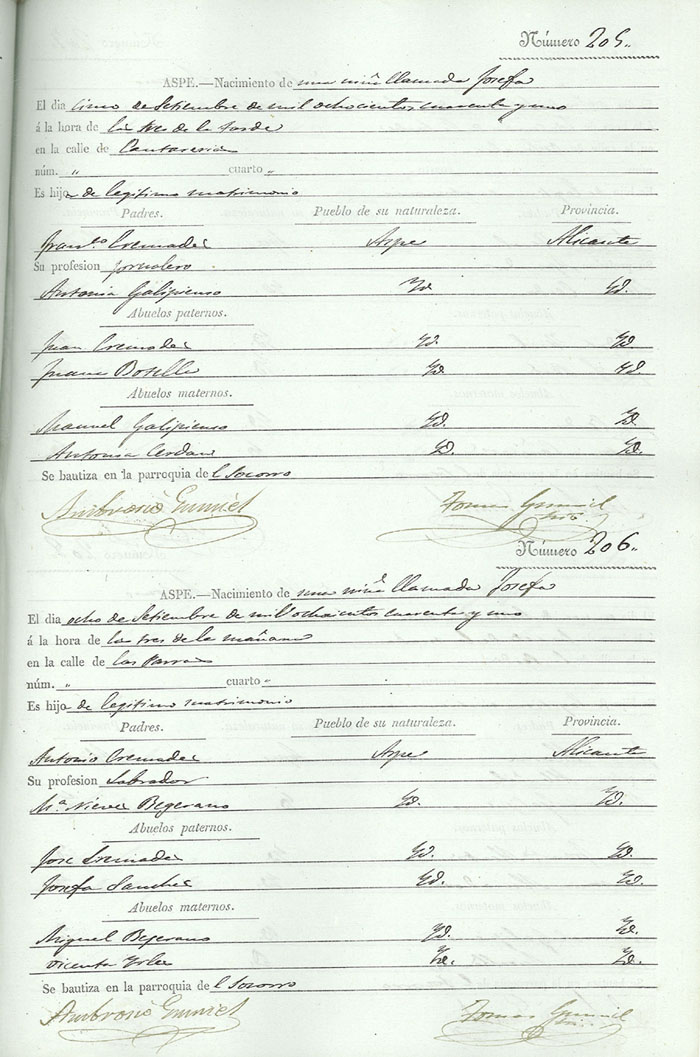 Número 205.
ASPE.—Nacimiento de una niña llamada Josefa
El dia cinco de Setiembre de mil ochocientos cuarenta y uno
á la hora de las tres de la tarde
en la calle de Cantareria
núm. " cuarto "
Es hijo de legitimo matrimonio
Padres. Pueblo de su naturaleza. Provincia.
Franco Cremades Aspe Alicante
Su profesion jornalero
Antonia Galipienso Yd. Yd.
Abuelos paternos.
Juan Cremades Yd. Yd.
Juana Botella Yd. Yd.
Abuelos maternos.
Manuel Galipienso Yd. Yd.
Antonia Cerdan Yd. Yd.
Se bautiza en la parroquia del Socorro
Ambrosio Gumiel Tomas Gumiel
Número 206.
ASPE.—Nacimiento de una niña llamada Josefa
El dia ocho de Setiembre de mil ochocientos cuarenta y uno
á la hora de las tres de la mañana
en la calle de las Parras
núm. " cuarto "
Es hijo de legitimo matrimonio
Padres. Pueblo de su naturaleza. Provincia.
Antonio Cremades Aspe Alicante
Su profesion Labrador
Mª Nieves Begerano Yd. Yd.
Abuelos paternos.
Jose Cremades Yd. Yd.
Josefa Sanchez Yd. Yd.
Abuelos maternos.
Miguel Begerano Yd. Yd.
Vicenta Yd. Yd.
Se bautiza en la parroquia del Socorro
Ambrosio Gumiel Tomas Gumiel